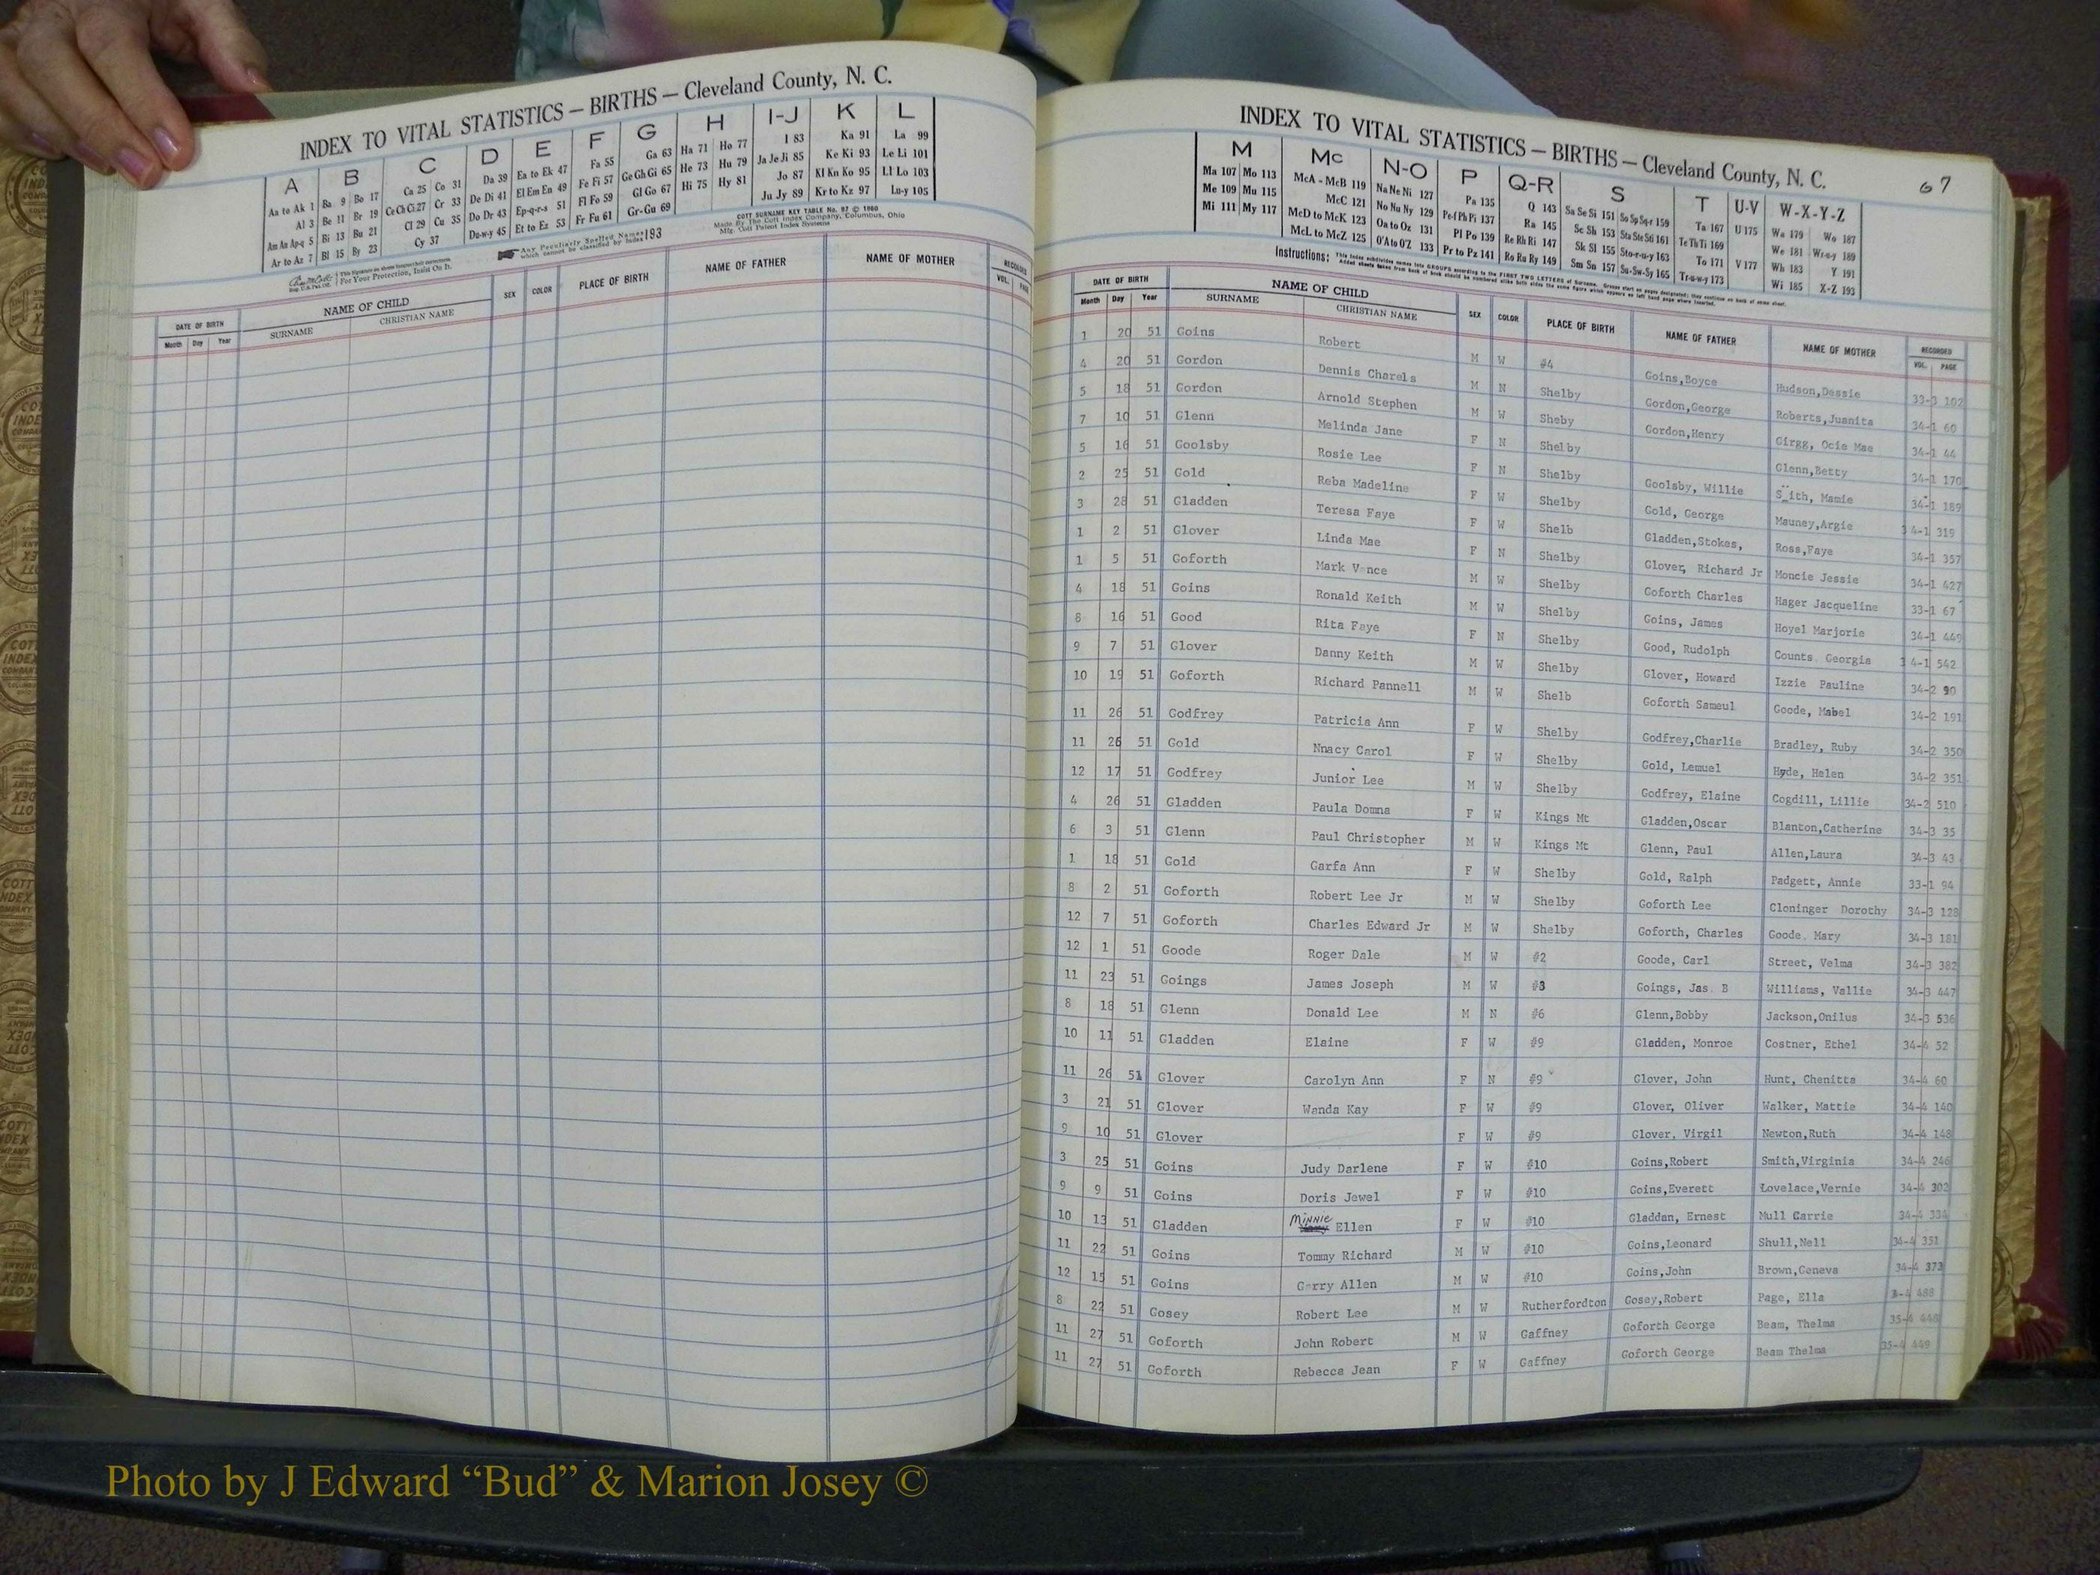 INDEX TO VITAL STATISTICS — BIRTHS — Cleveland County, N. C.
A B C D E F G H I-J K L
Aa to Ak 1 Ba 9 Bo 17 Ca 25 Co 31 Da 39 Ea to Ek 47 Fa 55 Ga 63 Ha 71 Ho 77 I 83 Ka 91 La 99
Al 3 Be 11 Br 19 Ce Ch Ci 27 Cr 33 De Di 41 El Em En 49 Fe Fi 57 Ge Gh Gi 65 He 73 Hu 79 Ja Je Ji 85 Ke Ki 93 Le Li 101
Am An Ap-q 5 Bi 13 Bu 21 Cl 29 Cu 35 Do Dr 43 Ep-q-r-s 51 Fl Fo 59 Gl Go 67 Hi 75 Hy 81 Jo 87 Kl Kn Ko 95 Ll Lo 103
Ar to Az 7 Bl 15 By 23 Cy 37 Du-w-y 45 Et to Ez 53 Fr Fu 61 Gr-Gu 69 Ju Jy 89 Kr to Kz 97 Lu-y 105
For Your Protection, Insist On It.
Any Peculiarly Spelled Names which cannot be classified by Index 193
COTT SURNAME KEY TABLE No. 97 © 1960
Made By The Cott Index Company, Columbus, Ohio
Mfg. Cott Patent Index Systems
DATE OF BIRTH NAME OF CHILD SEX COLOR PLACE OF BIRTH NAME OF FATHER NAME OF MOTHER RECORDED
Month Day Year SURNAME CHRISTIAN NAME VOL. PAGE
INDEX TO VITAL STATISTICS — BIRTHS — Cleveland County, N. C.
67
M Mc N-O P Q-R S T U-V W-X-Y-Z
Ma 107 Mo 113 McA - McB 119 Na Ne Ni 127 Pa 135 Q 143 Sa Se Si 151 So Sp Sq-r 159 Ta 167 U 175 Wa 179 Wo 187
Me 109 Mu 115 McC 121 No Nu Ny 129 Pe-f Ph Pi 137 Ra 145 Sc Sh 153 Sta Ste Sti 161 Te Th Ti 169 We 181 Wr-u-y 189
Mi 111 My 117 McD to McK 123 Oa to Oz 131 Pl Po 139 Re Rh Ri 147 Sk Sl 155 Sto-r-u-y 163 To 171 V 177 Wh 183 Y 191
McL to McZ 125 O'A to O'Z 133 Pr to Pz 141 Ro Ru Ry 149 Sm Sn 157 Su-Sw-Sy 165 Tr-u-w-y 173 Wi 185 X-Z 193
Instructions: This Index subdivides names into GROUPS according to the FIRST TWO LETTERS of Surname.
DATE OF BIRTH NAME OF CHILD SEX COLOR PLACE OF BIRTH NAME OF FATHER NAME OF MOTHER RECORDED
Month Day Year SURNAME CHRISTIAN NAME VOL. PAGE
1 20 51 Goins Robert M W #4 Goins,Boyce Hudson,Dessie 33-3 102
4 20 51 Gordon Dennis Charels M N Shelby Gordon,George Roberts,Juanita 34-1 60
5 18 51 Gordon Arnold Stephen M W Sheby Gordon,Henry Girgg, Ocie Mae 34-1 44
7 10 51 Glenn Melinda Jane F N Shelby Glenn,Betty 34-1 170
5 16 51 Goolsby Rosie Lee F N Shelby Goolsby, Willie S ith, Mamie 34-1 189
2 25 51 Gold Reba Madeline F W Shelby Gold, George Mauney,Argie 3 4-1 319
3 28 51 Gladden Teresa Faye F W Shelb Gladden,Stokes, Ross,Faye 34-1 357
1 2 51 Glover Linda Mae F N Shelby Glover, Richard Jr Moncie Jessie 34-1 427
1 5 51 Goforth Mark Vance M W Shelby Goforth Charles Hager Jacqueline 33-1 67
4 18 51 Goins Ronald Keith M W Shelby Goins, James Hoyel Marjorie 34-1 449
8 16 51 Good Rita Faye F N Shelby Good, Rudolph Counts Georgia 3 4-1 542
9 7 51 Glover Danny Keith M W Shelby Glover, Howard Izzie Pauline 34-2 90
10 19 51 Goforth Richard Pannell M W Shelb Goforth Sameul Goode, Mabel 34-2 191
11 26 51 Godfrey Patricia Ann F W Shelby Godfrey,Charlie Bradley, Ruby 34-2 350
11 26 51 Gold Nnacy Carol F W Shelby Gold, Lemuel Hyde, Helen 34-2 351
12 17 51 Godfrey Junior Lee M W Shelby Godfrey, Elaine Cogdill, Lillie 34-2 510
4 26 51 Gladden Paula Donna F W Kings Mt Gladden,Oscar Blanton,Catherine 34-3 35
6 3 51 Glenn Paul Christopher M W Kings Mt Glenn, Paul Allen,Laura 34-3 43
1 18 51 Gold Garfa Ann F W Shelby Gold, Ralph Padgett, Annie 33-1 94
8 2 51 Goforth Robert Lee Jr M W Shelby Goforth Lee Cloninger Dorothy 34-3 128
12 7 51 Goforth Charles Edward Jr M W Shelby Goforth, Charles Goode, Mary 34-3 181
12 1 51 Goode Roger Dale M W #2 Goode, Carl Street, Velma 34-3 382
11 23 51 Goings James Joseph M W #3 Goings, Jas. B Williams, Vallie 34-3 447
8 18 51 Glenn Donald Lee M N #6 Glenn,Bobby Jackson,Onilus 34-3 536
10 11 51 Gladden Elaine F W #9 Gladden, Monroe Costner, Ethel 34-4 52
11 26 51 Glover Carolyn Ann F N #9 Glover, John Hunt, Chenitta 34-4 60
3 21 51 Glover Wanda Kay F W #9 Glover, Oliver Walker, Mattie 34-4 140
9 10 51 Glover F W #9 Glover, Virgil Newton,Ruth 34-4 148
3 25 51 Goins Judy Darlene F W #10 Goins,Robert Smith,Virginia 34-4 246
9 9 51 Goins Doris Jewel F W #10 Goins,Everett Lovelace,Vernie 34-4 302
10 13 51 Gladden Minnie Ellen F W #10 Gladdan, Ernest Mull Carrie 34-4 334
11 22 51 Goins Tommy Richard M W #10 Goins,Leonard Shull,Nell 34-4 351
12 15 51 Goins Garry Allen M W #10 Goins,John Brown,Geneva 34-4 373
8 22 51 Gosey Robert Lee M W Rutherfordton Gosey,Robert Page, Ella 3-4 488
11 27 51 Goforth John Robert M W Gaffney Goforth George Beam, Thelma 35-4 448
11 27 51 Goforth Rebecca Jean F W Gaffney Goforth George Beam Thelma 35-4 449
Photo by J Edward “Bud” & Marion Josey ©